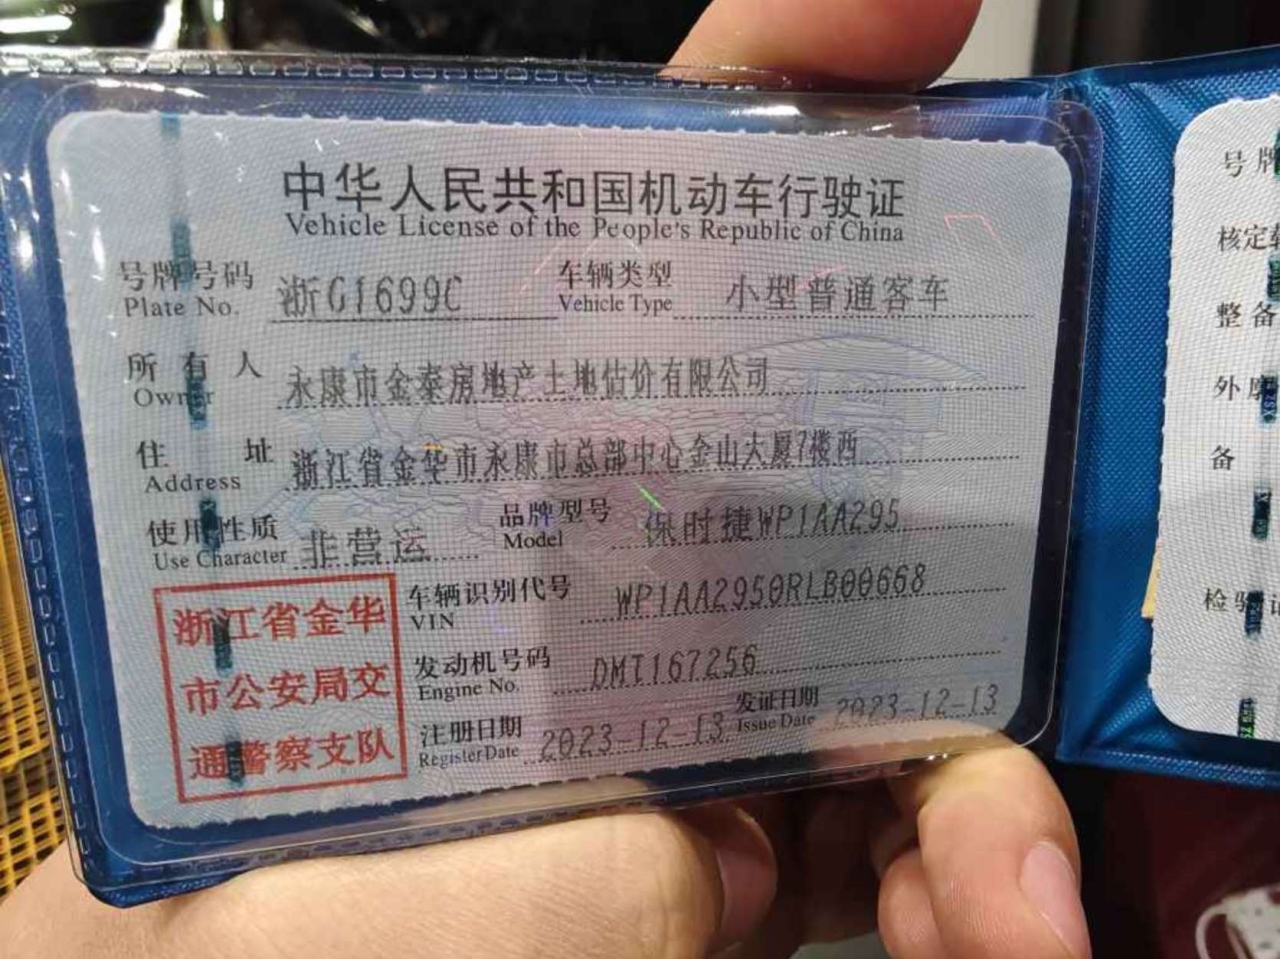 中华人民共和国机动车行驶证
Vehicle License of the People's Republic of China
号牌号码 浙G1699C 车辆类型 小型普通客车
Plate No. Vehicle Type
所有人 永康市金泰房地产土地估价有限公司
Owner
住址 浙江省金华市永康市总部中心金山大厦7楼西
Address
使用性质 非营运 品牌型号 保时捷WP1AA295
Use Character Model
浙江省金华
市公安局交
通警察支队
车辆识别代号 WP1AA2950RLB00668
VIN
发动机号码 DMT167256
Engine No.
注册日期 2023-12-13 发证日期 2023-12-13
Register Date Issue Date
号牌
核定
整备
外
备
检验